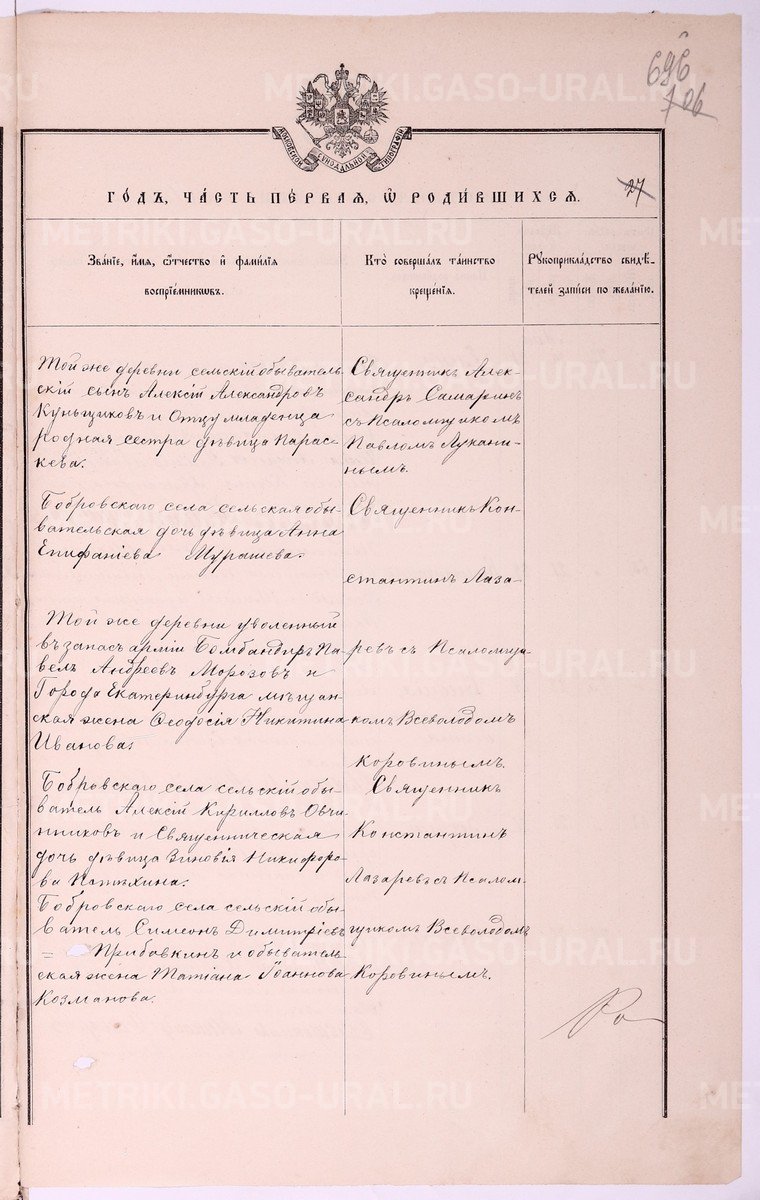 696
106
МОСКОВСКОЙ СѴНОДАЛЬНОЙ ТИПОГРАФІИ
27
ГО́ДЪ, ЧА́СТЬ ПЕ́РВАЯ, Ѿ РОДИ́ВШИХСЯ.
Зва́ніе, и҆́мя, ѻ҆́тчество и҆ фами́лія
воспріе́мникѡвъ.
Кто̀ соверша́лъ та́инство
креще́нія.
Рꙋкоприкла́дство свидѣ́-
телей за́писи по жела́нію.
Той же деревни сельскій обыватель-
скій сынъ Алексій Александровъ
Куньщиковъ и Отцу младенца
родная сестра дѣвица Парас-
кева.
Священникъ Алек-
сандръ Самаринъ
съ Псаломщикомъ
Павломъ Лукани-
нымъ.
Бобровскаго села сельская обы-
вательская дочь дѣвица Анна
Епифаніева Мурашева.
Священникъ Кон-
стантинъ Лаза-
ревъ съ Псаломщи-
комъ Всеволодомъ
Коровинымъ.
Той же деревни уволенный
въ запасъ арміи Бомбандиръ Па-
велъ Андреевъ Морозовъ и
Города Екатеринбурга мѣщан-
ская жена Ѳеодосія Никитина
Иванова.
Бобровскаго села сельскій обы-
ватель Алексій Кирилловъ Овчи-
нниковъ и Священническая
дочь дѣвица Зиновія Никифоро-
ва Пѣтухина.
Священникъ
Константинъ
Лазаревъ съ Псалом-
щикомъ Всеволодомъ
Коровинымъ.
Бобровскаго села сельскій обы-
ватель Симеонъ Димитріевъ
= Прибавкинъ и обыватель-
ская жена Татіана Іоаннова
Козманова.
Ро
METRIKI.GASO-URAL.RU